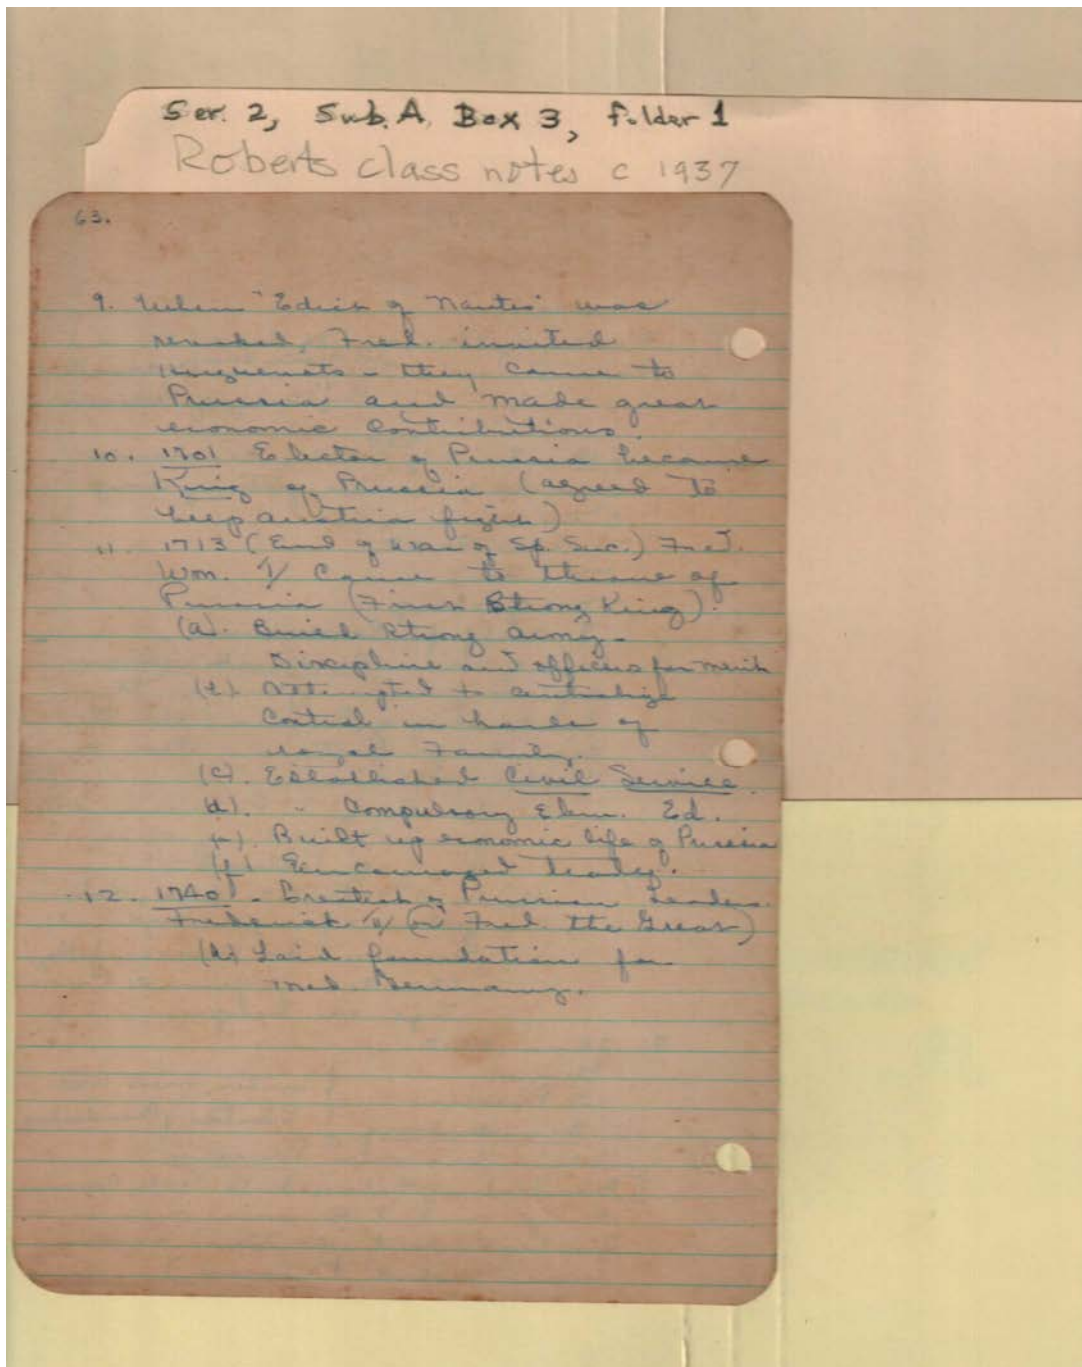 Ser. 2, Sub. A, Box 3, folder 1
Roberts class notes c 1937
63.
9. When "Edict of Nantes" was
revoked, Fred. invited
Huguenots - they came to
Prussia and made great
economic contributions.
10. 1701 Elector of Prussia became
King of Prussia (agreed to
help Austria fight)
11. 1713 (End of War of Sp. Suc.) Fred.
Wm. I/ Came to throne of
Prussia (First Strong King).
(a). Build strong army.
Discipline and officers for merit
(b) Attempted to centralize
Control in hands of
royal Family.
(c). Established Civil Service.
(d). " Compulsory Elem. Ed.
(e). Built up economic life of Prussia
(f) Encouraged trade.
12. 1740 - Greatest of Prussian Leaders
Frederick II (or Fred. the Great)
(a) Laid foundation for
mod. Germany.